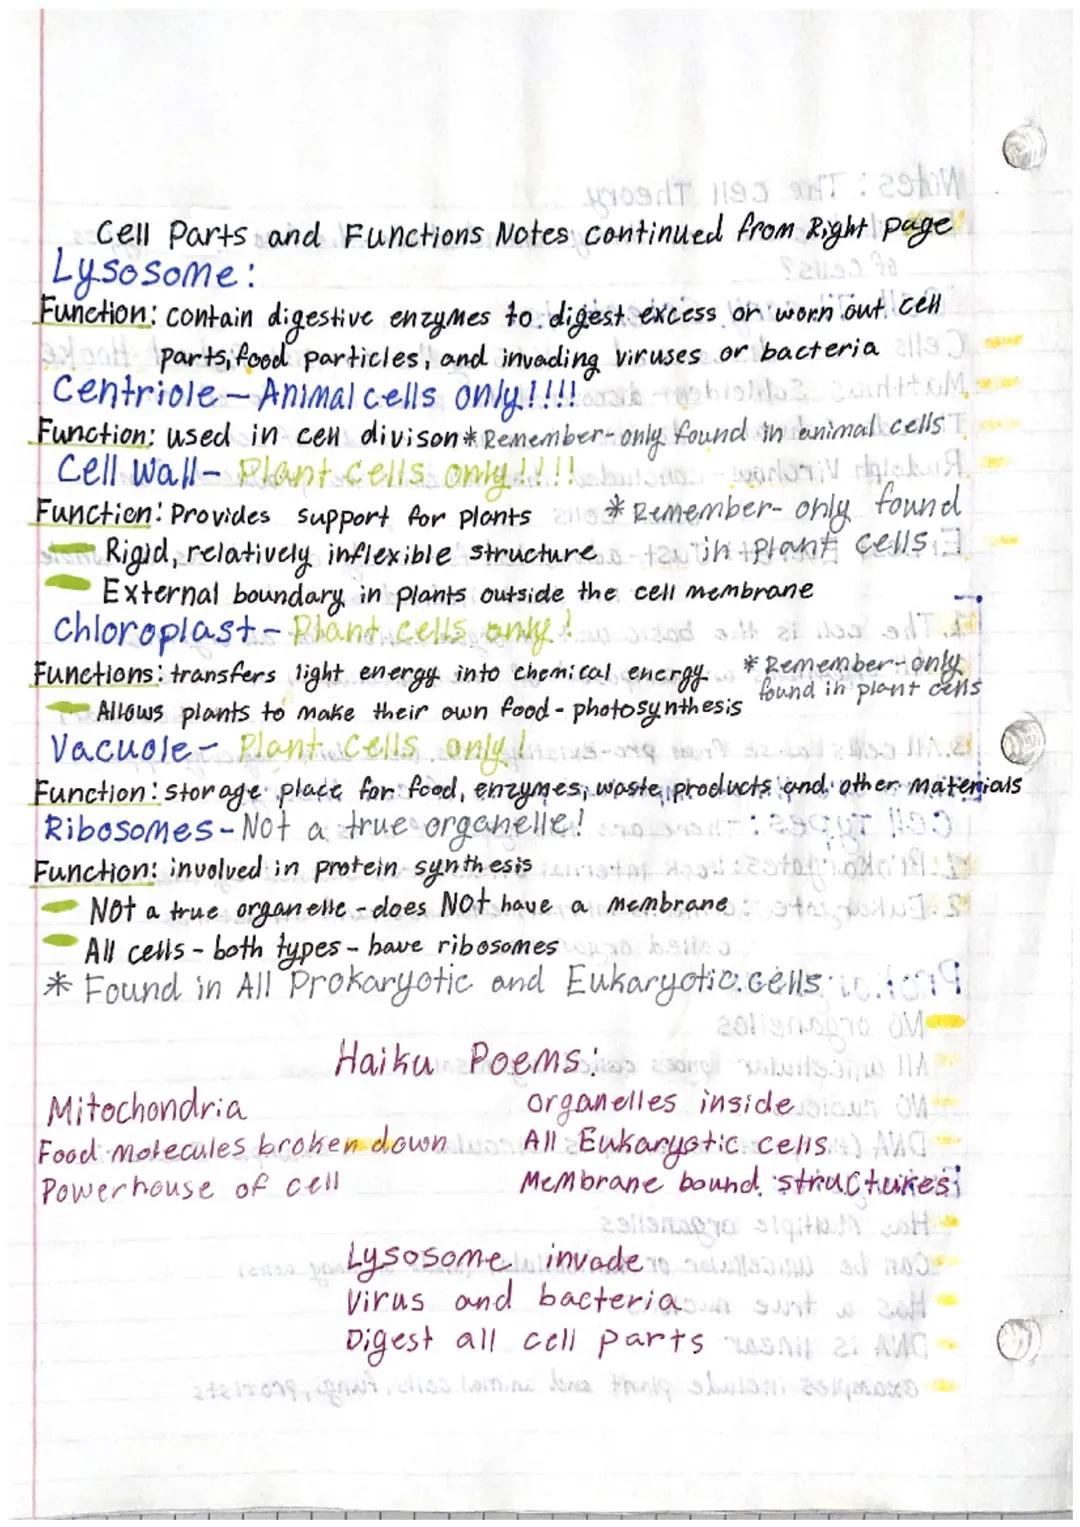 Cell Parts and Functions Notes continued from Right page
Lysosome:
Function: contain digestive enzymes to digest excess or worn out cell
parts, food particles, and invading viruses or bacteria
Centriole - Animal cells only!!!!
Function: used in cell divison * Remember - only found in animal cells
Cell Wall - Plant cells only!!!!
Function: Provides support for plants * Remember - only found
- Rigid, relatively inflexible structure in plant cells
- External boundary in plants outside the cell membrane
Chloroplast - Plant cells only!
Functions: transfers light energy into chemical energy * Remember - only
- Allows plants to make their own food - photosynthesis found in plant cells
Vacuole - Plant cells only!
Function: storage place for food, enzymes, waste products and other materials
Ribosomes - Not a true organelle!
Function: involved in protein synthesis
- NOt a true organelle - does NOt have a membrane
- All cells - both types - have ribosomes
* Found in All Prokaryotic and Eukaryotic cells
Haiku Poems:
Mitochondria
Food Molecules broken down
Powerhouse of cell
Organelles inside
All Eukaryotic cells
Membrane bound structures
Lysosome invade
Virus and bacteria
Digest all cell parts